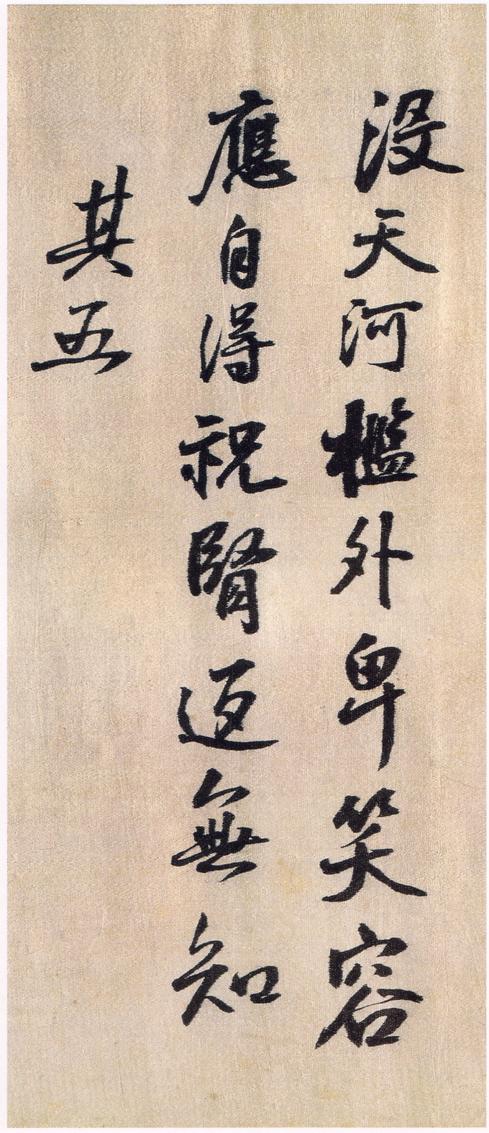 没天河檻外卑笑容
應自得祝腎無知
其五